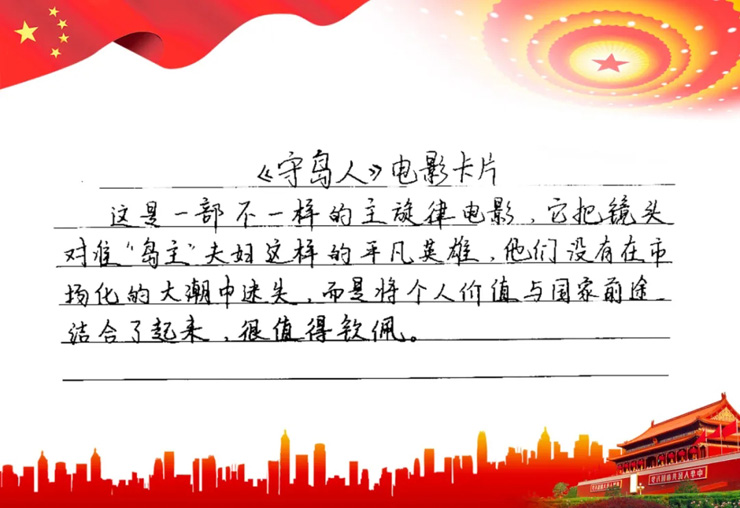 《守岛人》电影卡片
这是一部不一样的主旋律电影,它把镜头
对准“岛主”夫妇这样的平凡英雄,他们没有在市
场化的大潮中迷失,而是将个人价值与国家前途
结合了起来,很值得钦佩。